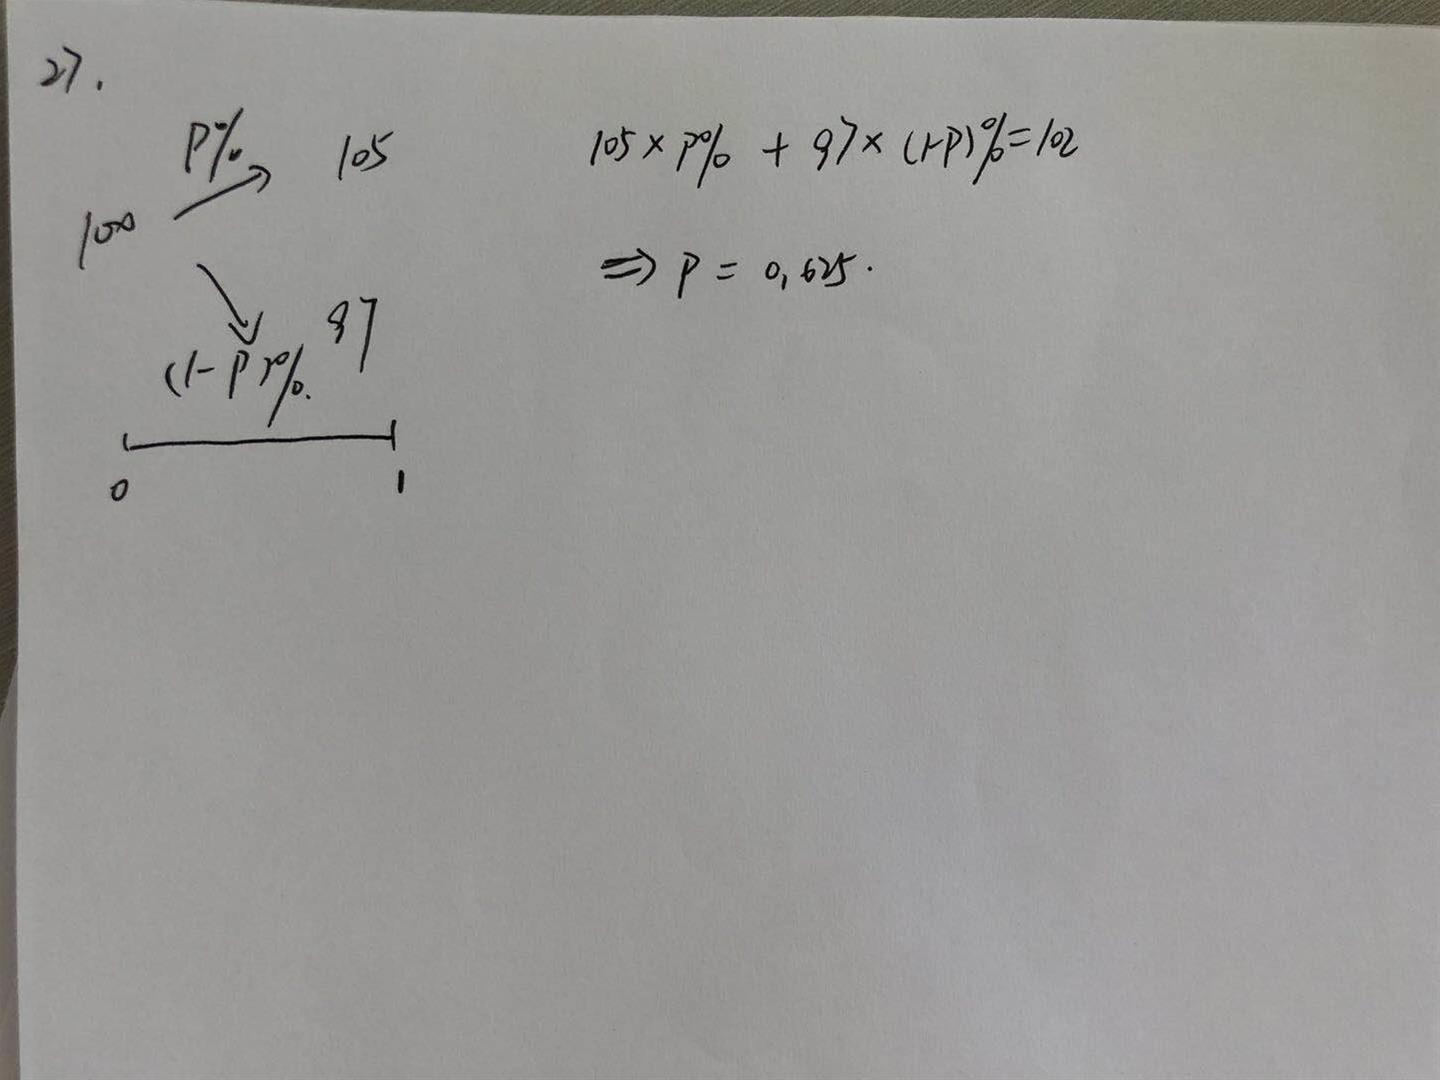 27.
P% 105
100
(1-P)% 97
0 1
105 × P% + 97 × (1-P)% = 102
⇒ P = 0.625.